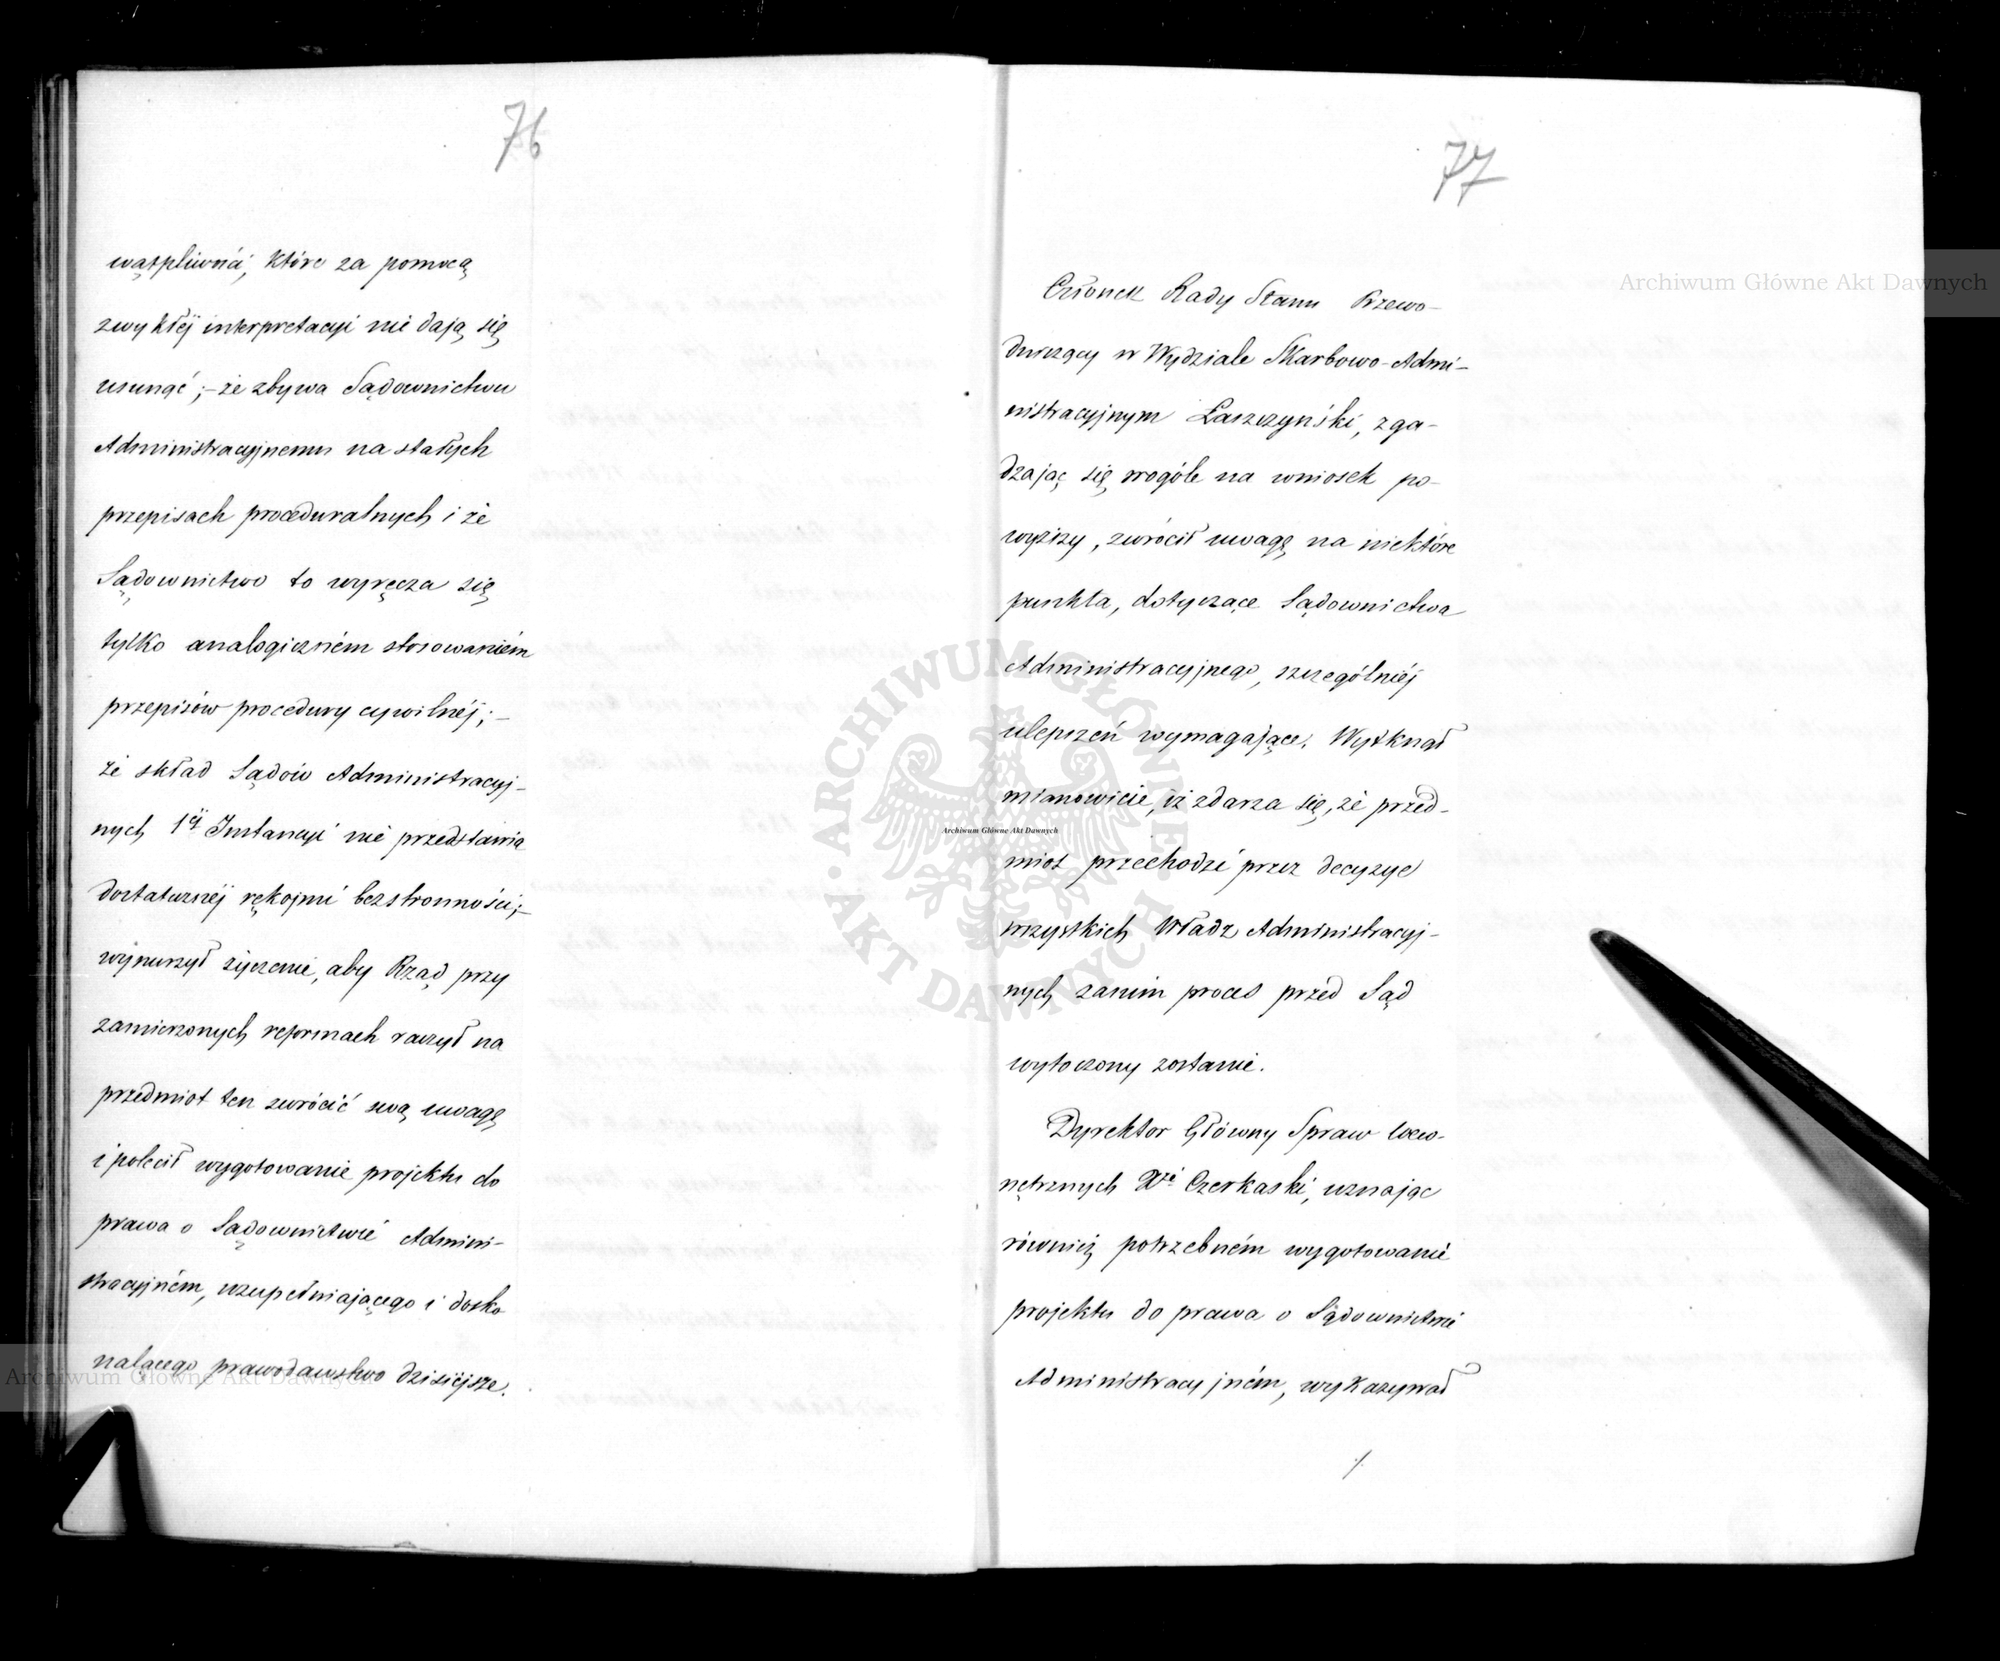 76
wątpliwości, które za pomocą
zwykłéj interpretacyi nie dają się
usunąć;– że zbywa Sądownictwu
Administracyjnemu na stałych
przepisach proceduralnych i że
Sądownictwo to wyręcza się
tylko analogiczném stosowaniem
przepisów procedury cywilnéj;–
że skład Sądów Administracyj–
nych 1éj Instancyi nie przedstawia
dostatecznéj rękojmi bezstronności;–
wynurzył życzenie, aby Rząd przy
zamierzonych reformach raczył na
przedmiot ten zwrócić swą uwagę
i polecił wygotowanie projektu do
prawa o Sądownictwie Admini–
stracyjném, uzupełniającego i dosko
nalącego prawodawstwo dzisiéjsze.
77
Członek Rady Stanu Przewo–
dniczący w Wydziale Skarbowo-Admi–
nistracyjnym Łaszczyński, zga–
dzając się wogóle na wniosek po–
wyższy, zwrócił uwagę na niektóre
punkta, dotyczące Sądownictwa
Administracyjnego, szczególniéj
ulepszeń wymagające. Wytknął
mianowicie, iż zdarza się, że przed–
miot przechodzi przez decyzye
wszystkich Władz Administracyj–
nych zanim proces przed Sąd
wytoczony zostanie.
Dyrektor Główny Spraw Wew–
nętrznych Xże Czerkaski, uznając
również potrzebném wygotowanie
projektu do prawa o Sądownictwie
Administracyjném, wykazywał
./.
Archiwum Główne Akt Dawnych
Archiwum Główne Akt Dawnych
Archiwum Główne Akt Dawnych
ARCHIWUM GŁÓWNE • AKT DAWNYCH •